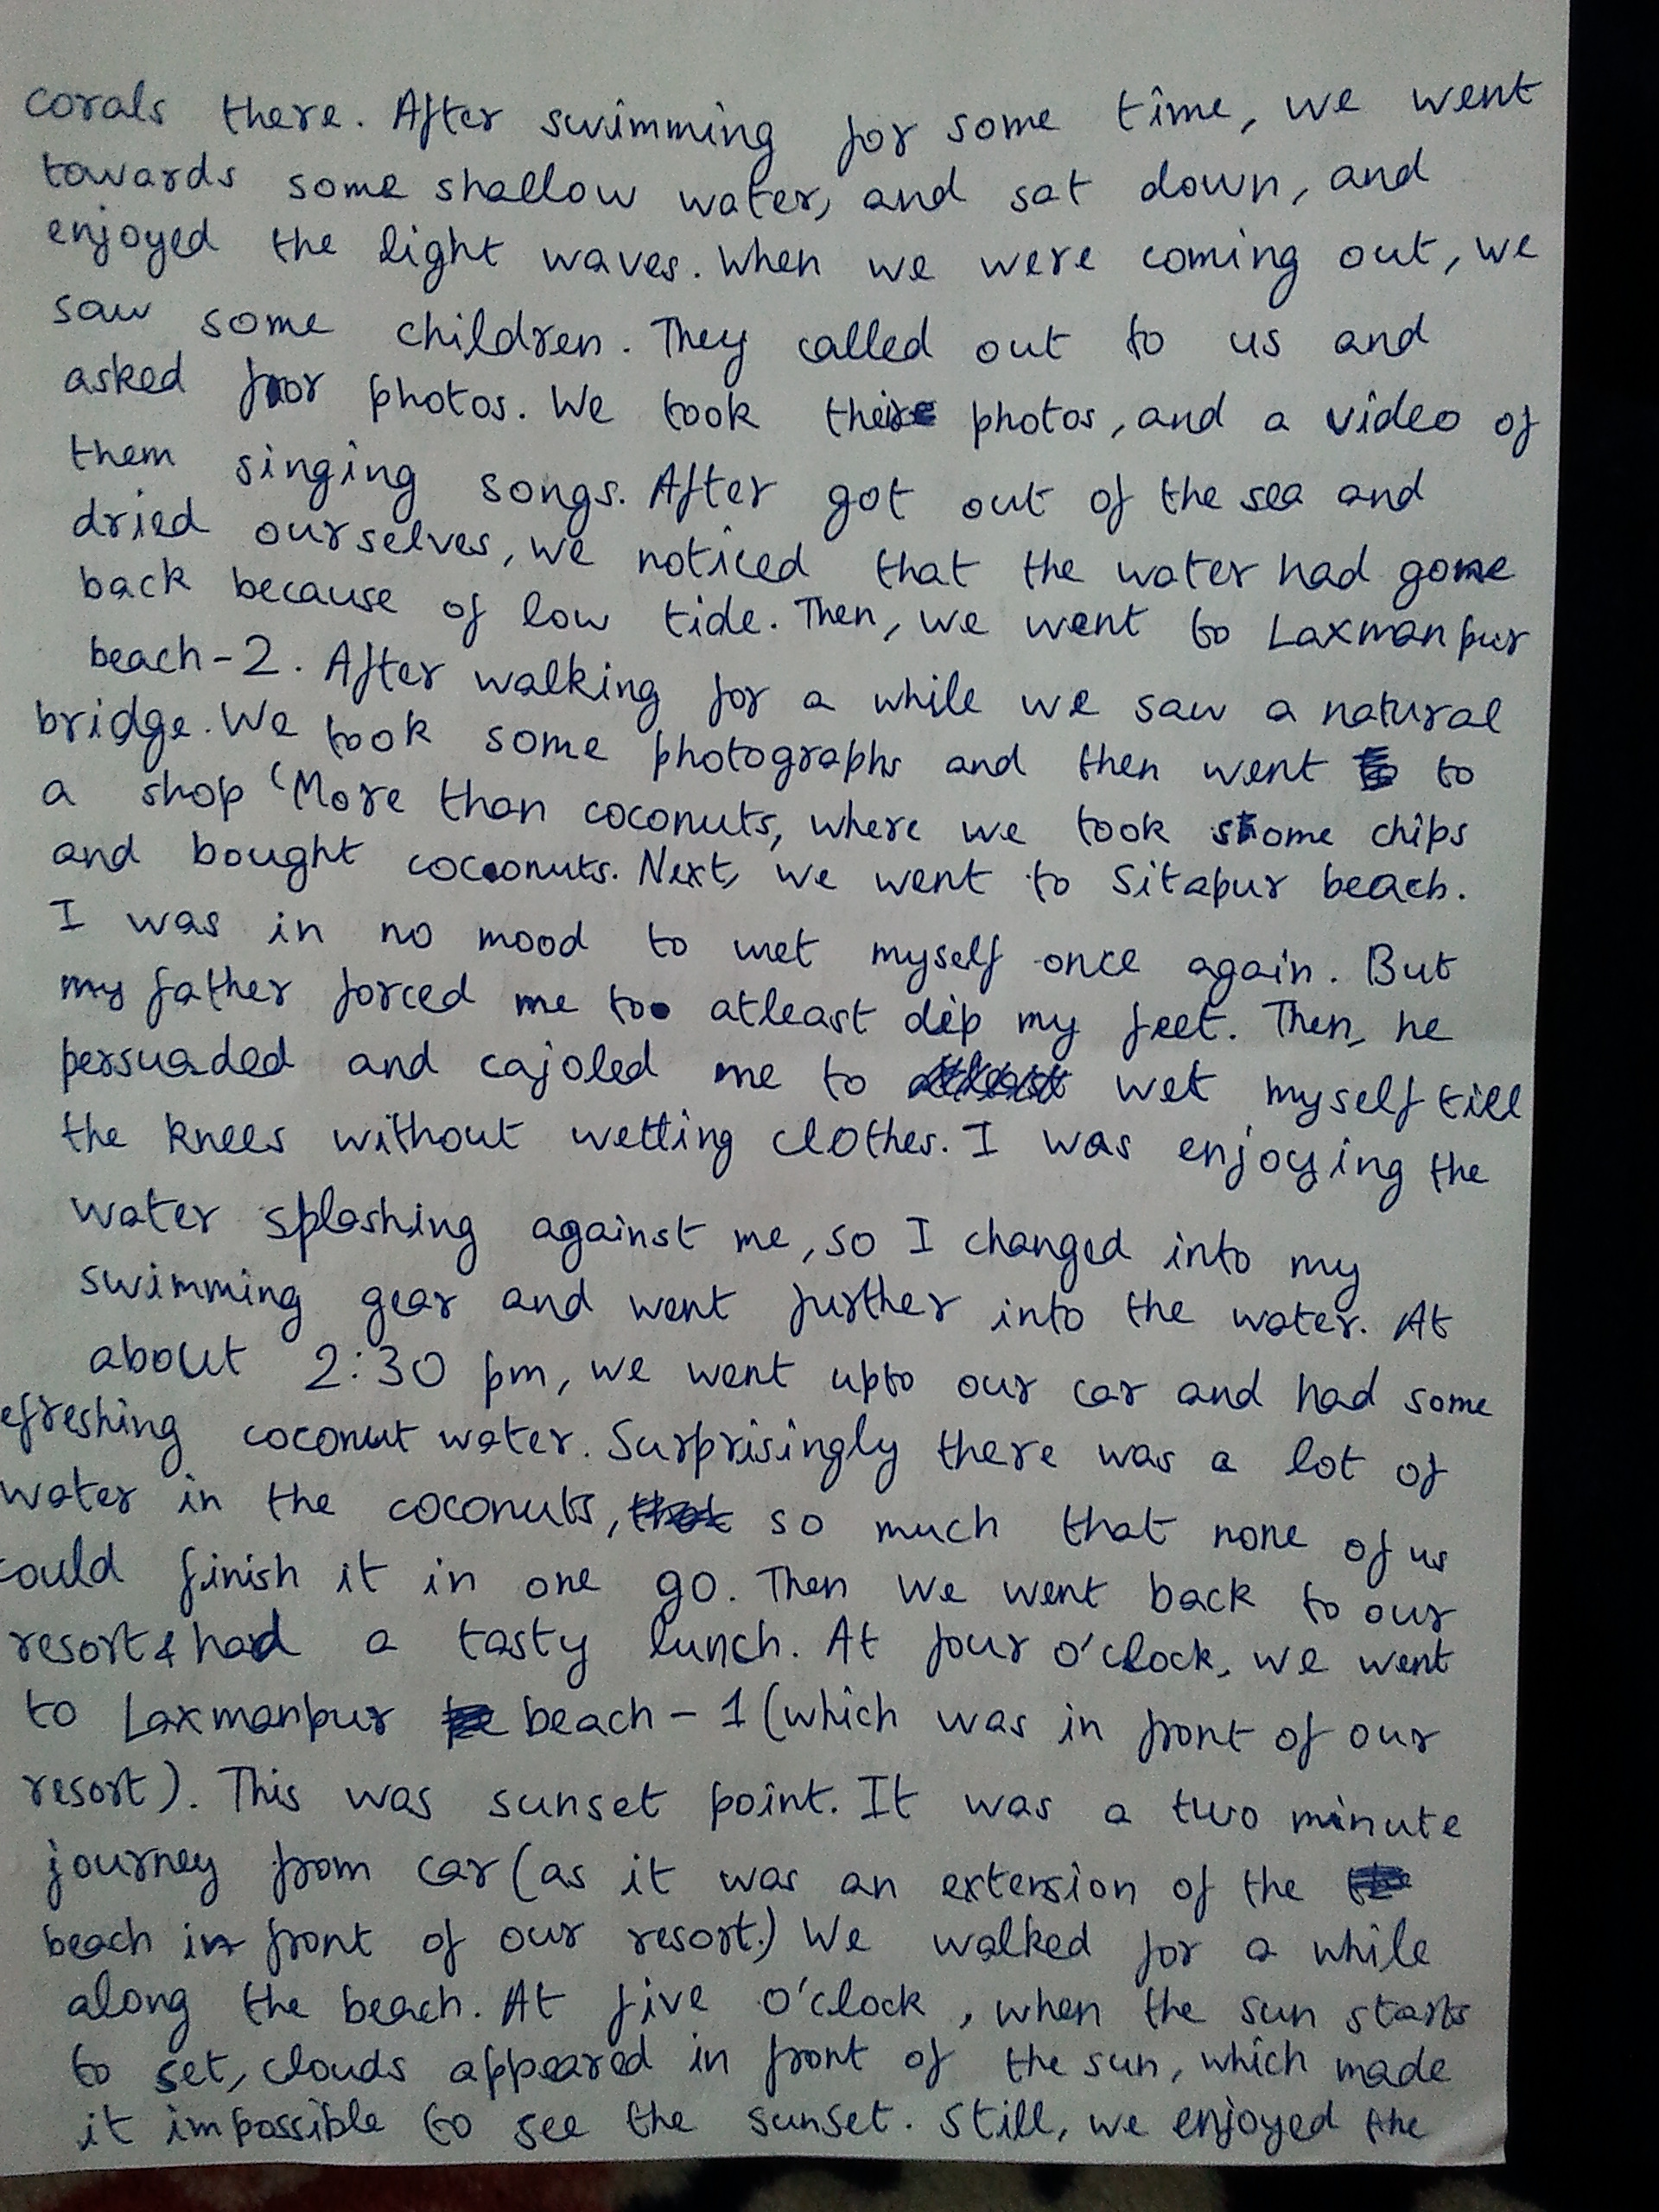 corals there. After swimming for some time, we went
towards some shallow water, and sat down, and
enjoyed the light waves. When we were coming out, we
saw some children. They called out to us and
asked for photos. We took their photos, and a video of
them singing songs. After got out of the sea and
dried ourselves, we noticed that the water had gone
back because of low tide. Then, we went to Laxmanpur
beach-2. After walking for a while we saw a natural
bridge. We took some photographs and then went to
a shop 'More than coconuts, where we took some chips
and bought coconuts. Next, we went to Sitapur beach.
I was in no mood to wet myself once again. But
my father forced me to atleast dip my feet. Then, he
persuaded and cajoled me to wet myself till
the knees without wetting clothes. I was enjoying the
water splashing against me, so I changed into my
swimming gear and went further into the water. At
about 2:30 pm, we went upto our car and had some
efreshing coconut water. Surprisingly there was a lot of
water in the coconuts, so much that none of us
could finish it in one go. Then we went back to our
resort & had a tasty lunch. At four o'clock, we went
to Laxmanpur beach-1 (which was in front of our
resort). This was sunset point. It was a two minute
journey from car (as it was an extension of the
beach in front of our resort.) We walked for a while
along the beach. At five o'clock, when the sun starts
to set, clouds appeared in front of the sun, which made
it impossible to see the sunset. Still, we enjoyed the